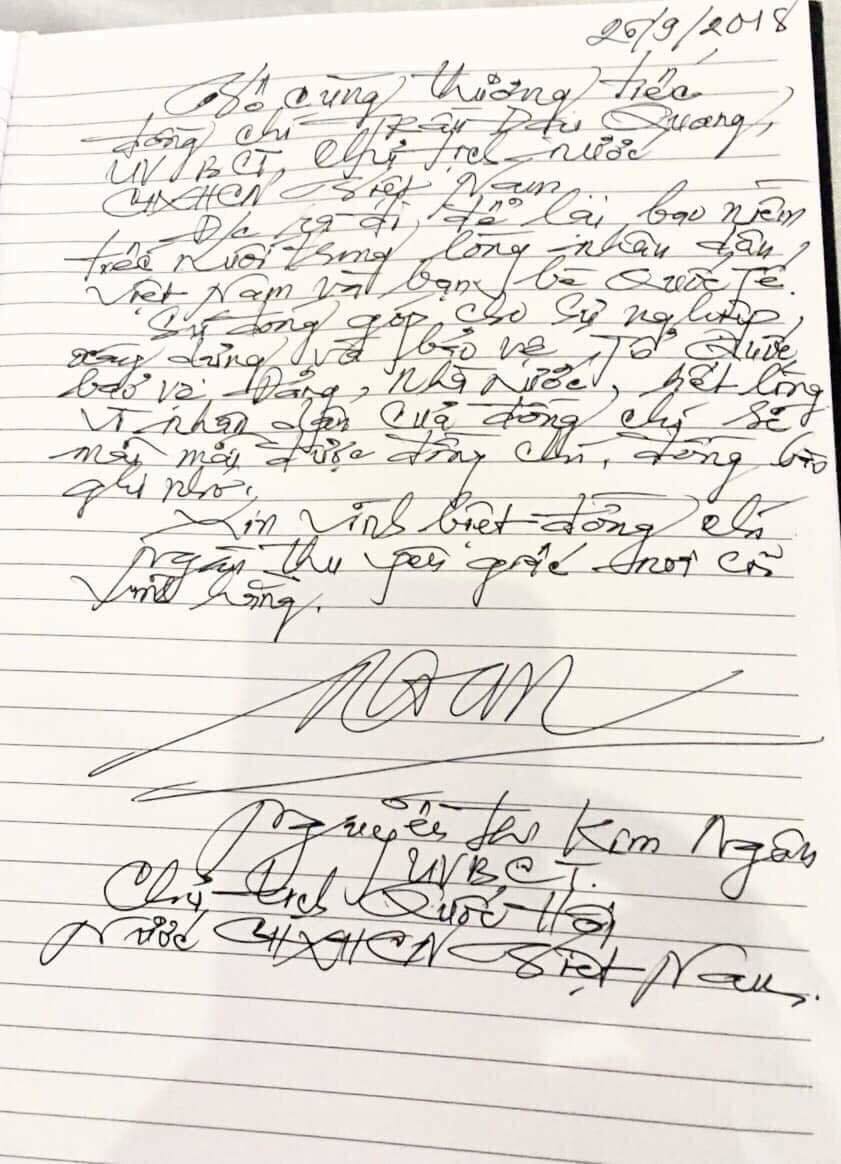 26/9/2018
Vô cùng thương tiếc
đồng chí Trần Đại Quang,
UV BCT, Chủ tịch nước
CHXHCN Việt Nam
Đ/c ra đi, để lại bao niềm
tiếc nuối trong lòng nhân dân
Việt Nam và bạn bè Quốc Tế.
Sự đóng góp cho sự nghiệp
xây dựng và bảo vệ Tổ Quốc,
bảo vệ Đảng, Nhà Nước, hết lòng
vì nhân dân của đồng chí sẽ
mãi mãi được đồng chí, đồng bào
ghi nhớ.
Xin vĩnh biệt đồng chí
ngàn thu yên giấc nơi cõi
vĩnh hằng.
Ngân
Nguyễn Thị Kim Ngân
UVBCT.
Chủ tịch Quốc Hội
Nước CHXHCN Việt Nam.